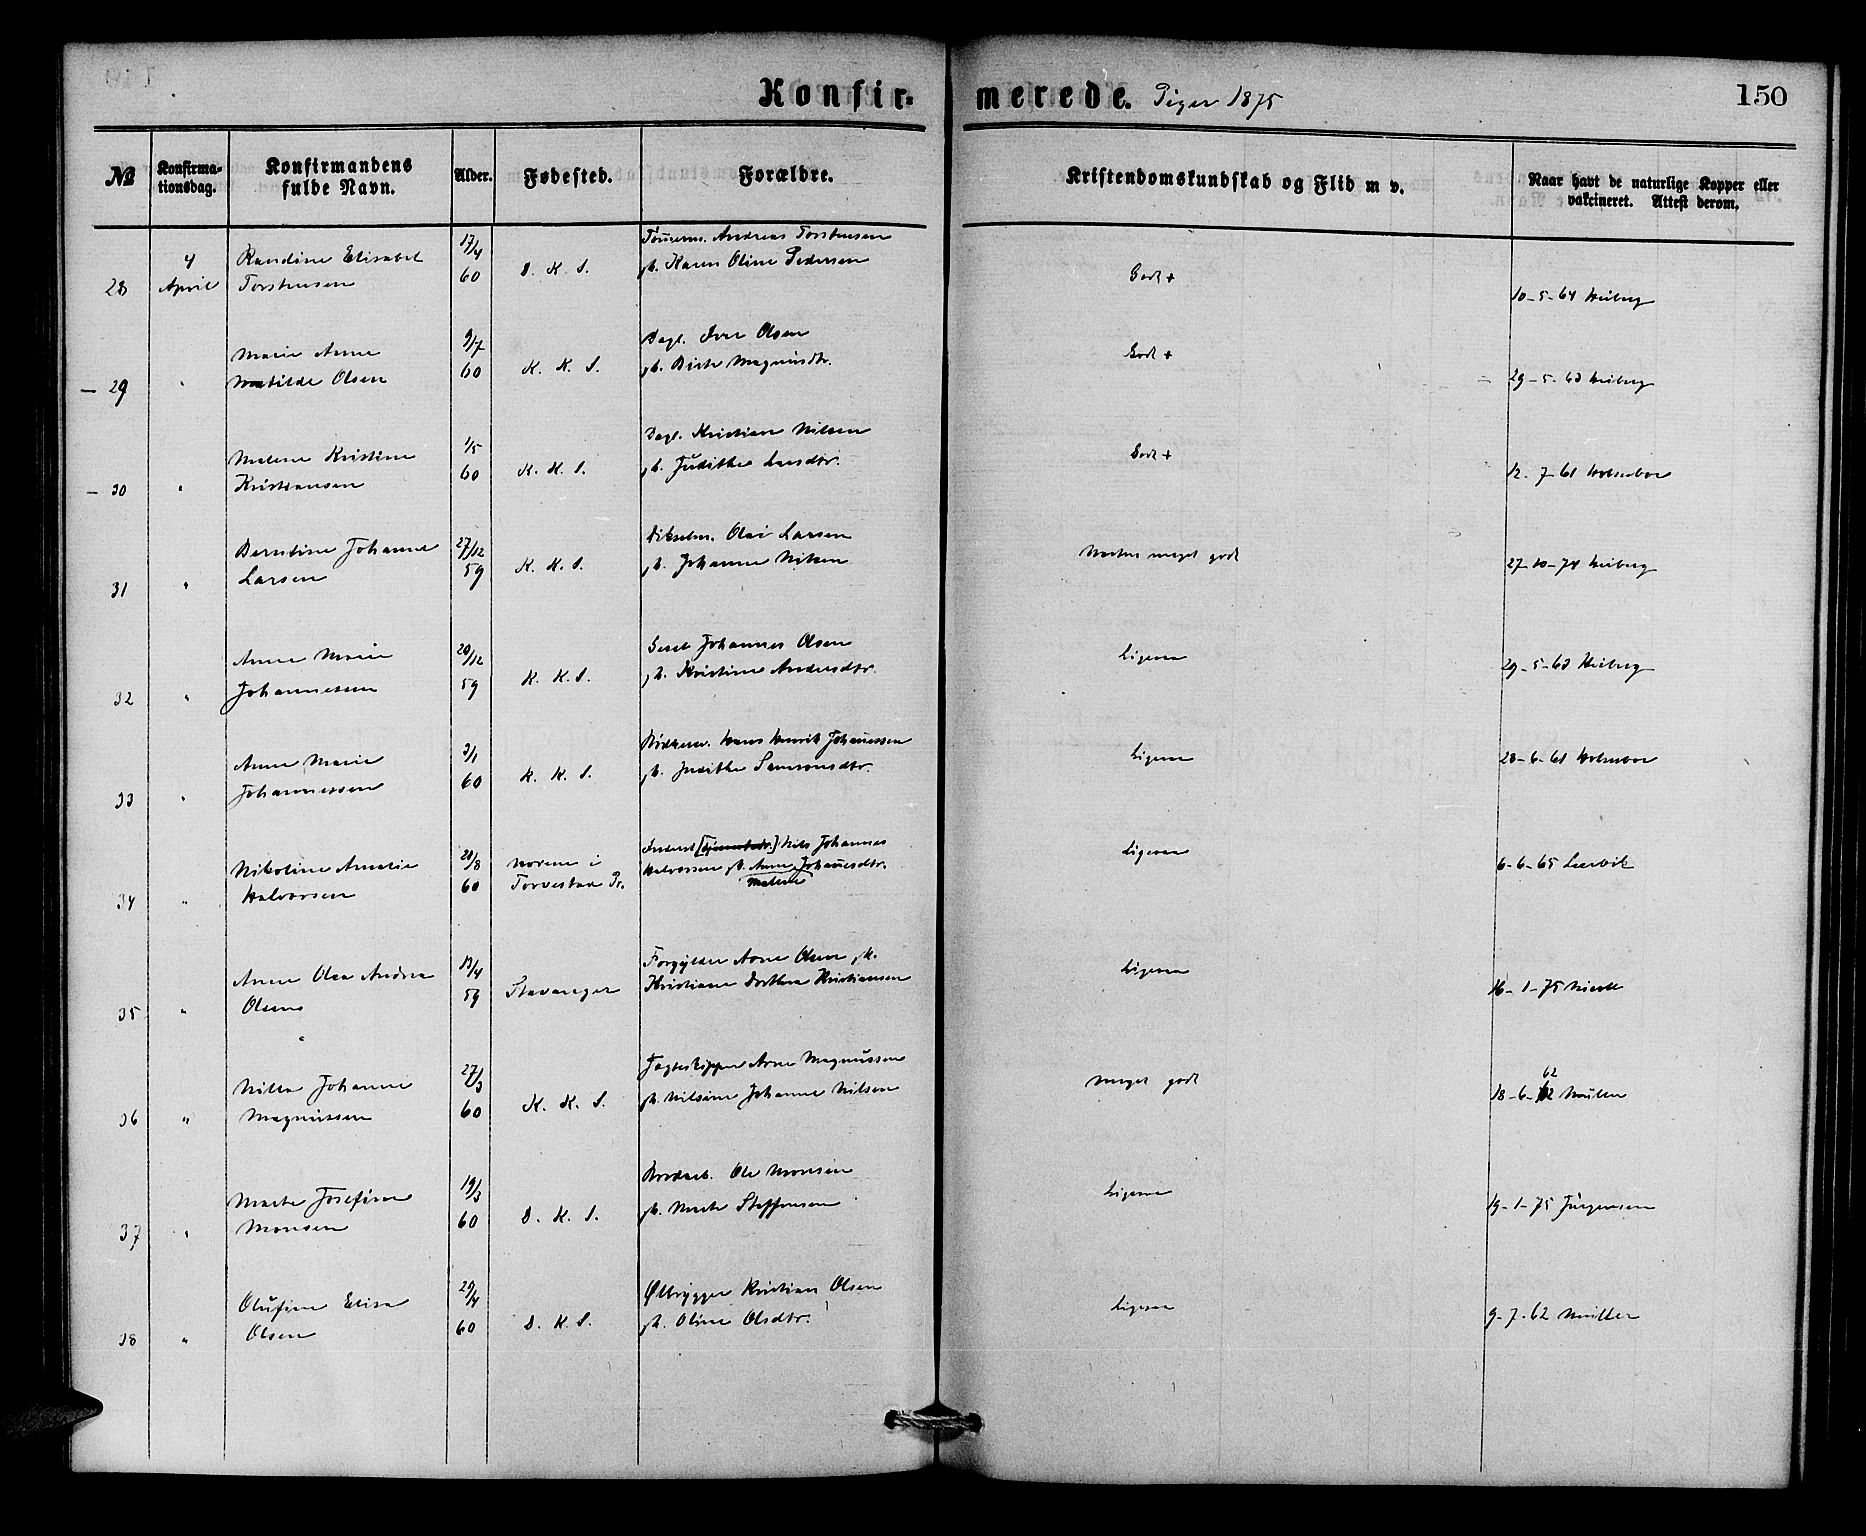 Konfir-
merede. Piger 1875
150
№
Konfirma-
tionsdag.
Konfirmandens
fulde Navn.
Alder.
Fødested.
Forældre.
Kristendomskundskab og Flid m v.
Naar havt de naturlige Kopper eller
vakcineret. Attest derom.
28
4
April
Randine Elisabet
Torstensen
17/4
60
D. K. S.
Tømerm. Andreas Torstensen
h. Karen Oline Pedersen
Godt +
10-5-64 Heiberg
— 29
"
Marie Anne
Matilde Olsen
9/7
60
K. K. S.
Dagl. Iver Olsen
h. Birte Magnusdtr.
Godt +
29-5-63 Heiberg
— 30
"
Malene Kristine
Kristiansen
1/5
60
K. K. S.
Dagl. Kristian Nilsen
h. Judithe Larsdtr.
Godt +
12-7-61 Holseboe
31
"
Berntine Johanne
Larsen
27/12
59
K. K. S.
Olai Larsen
h. Johanne Nilsen
Næsten meget godt
27-10-74 Heiberg
32
"
Anne Marie
Johannessen
20/12
59
K. K. S.
Johannes Olsen
h. Kristine Andersdtr.
Ligesaa
29-5-63 Heiberg
33
"
Anne Marie
Johannessen
3/1
60
K. K. S.
Bødkerm. Hans Henrik Johanessen
h. Judithe Samsonsdtr.
Ligesaa
23-6-61 Holseboe
34
"
Nikoline Amalie
Halvorsen
20/8
60
i
Torvestad Pr.
Nils Johannes
Halvorsen h. Anne Johanesdtr.
Malene
Ligesaa
6-6-65 Leervik
35
"
Anne Olea Andrea
Olsen
13/4
59
Stavanger
Forgylder Arne Olsen h.
Kristiane Dorthea Kristiansen
Ligesaa
16-1-75
36
"
Nilla Johanne
Magnussen
27/3
60
K. K. S.
Jagteskipper Arne Magnussen
h. Nilsine Johanne Nilsen
meget godt
62
18-6- Müller
37
"
Marte Josefine
Monsen
19/3
60
D. K. S.
Ole Monsen
h. Marte Steffensen
Ligesaa
19-1-75 Jürgensen
38
"
Olufine Elisa
Olsen
29/4
60
D. K. S.
Ølbrygger Kristian Olsen
h. Oline Olsdtr.
Ligesaa
9-7-62 Müller